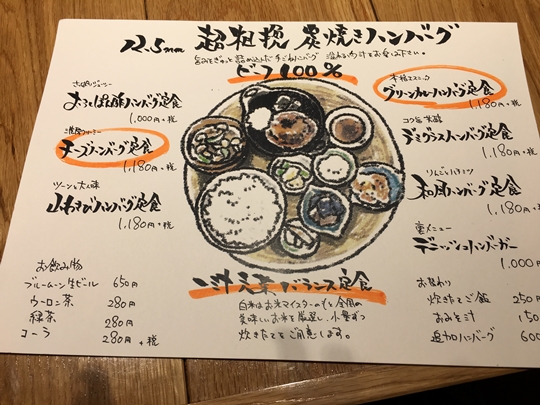 12.5mm 超粗挽 炭焼きハンバーグ
旨みをぎゅっと詰め込んだ手ごねハンバーグ 溢れる肉汁とお召し上がり下さい。
ビーフ100%
さっぱりジューシー
おろしぽん酢ハンバーグ定食
1,000円+税
濃厚クリーミー
チーズハンバーグ定食
1,180円+税
ツーンと大人味
山わさびハンバーグ定食
1,180円+税
お飲み物
ブルームーン生ビール 650円
ウーロン茶 280円
緑茶 280円
コーラ 280円 +税
本格エスニック
グリーンカレーハンバーグ定食
1,180円+税
コク旨 芳醇
デミグラスハンバーグ定食
1,180円+税
りんごとハチミツ
和風ハンバーグ定食
1,180円+税
裏メニュー
デニッシュハンバーガー
1,000円
お替わり
炊きたてご飯 250
おみそ汁 150
追加ハンバーグ 600
一汁三菜 バランス定食
白米はお米マイスターのもと全国の
美味しいお米を厳選し、小釜ずつ
炊きたてをご用意します。